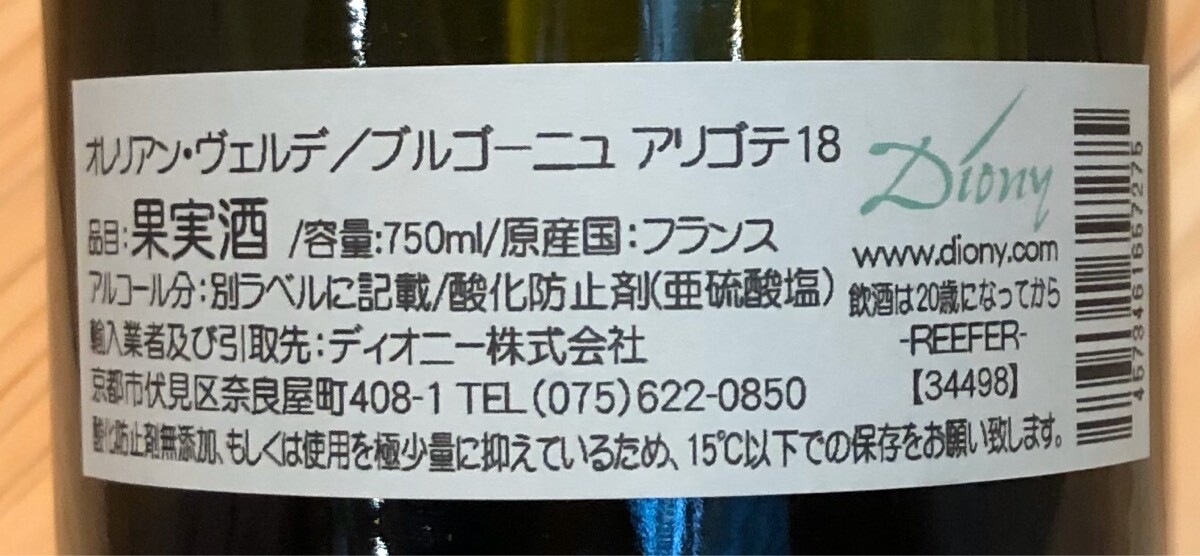 オレリアン・ヴェルデ/ブルゴーニュ アリゴテ18
品目:果実酒 /容量:750ml/原産国:フランス
アルコール分:別ラベルに記載/酸化防止剤(亜硫酸塩)
輸入業者及び引取先:ディオニー株式会社
京都市伏見区奈良屋町408-1 TEL(075)622-0850
酸化防止剤無添加、もしくは使用を極少量に抑えているため、15℃以下での保存をお願い致します。
Diony
www.diony.com
飲酒は20歳になってから
-REEFER-
【34498】
4573461657275